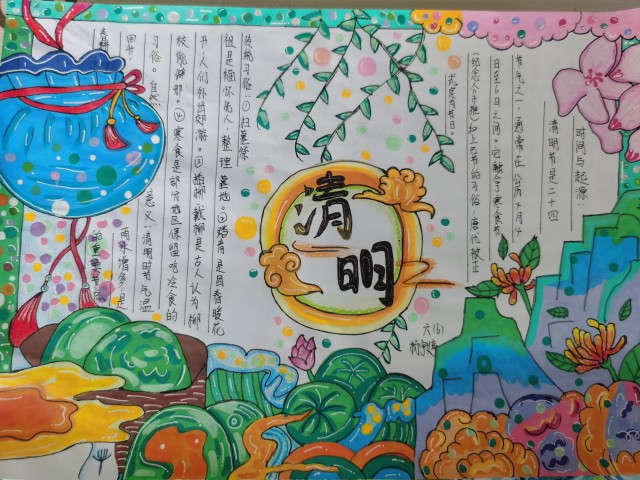 时间与起源:
清明节是二十四
节气之一,通常在公历4月4
日至6日之间。它融合了寒食节
(纪念介子推)和上巳节的习俗,唐代被正
式定为节日。
清明
六(6)
传统习俗:①扫墓祭
祖是缅怀先人,整理墓地。②踏青是因春暖花
开,人们外出郊游。③插柳戴柳是古人认为柳
枝能辟邪。④寒食是部分地区保留吃冷食的
习俗。
意义:清明时气温
雨水增多,是